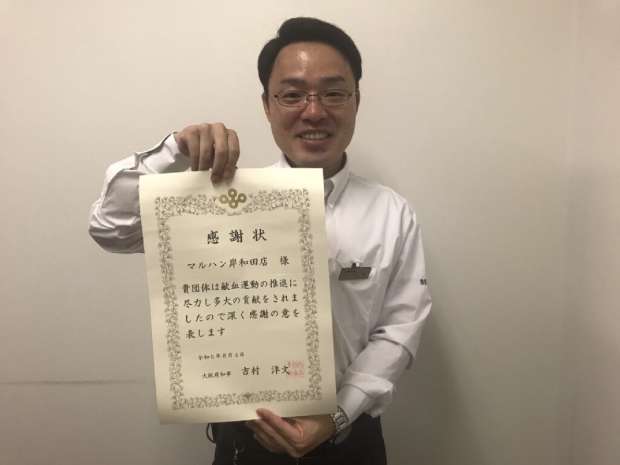 感謝状
マルハン岸和田店 様
貴団体は献血運動の推進に
尽力し多大の貢献をされま
したので深く感謝の意を
表します
令和6年8月6日
大阪府知事 吉村 洋文